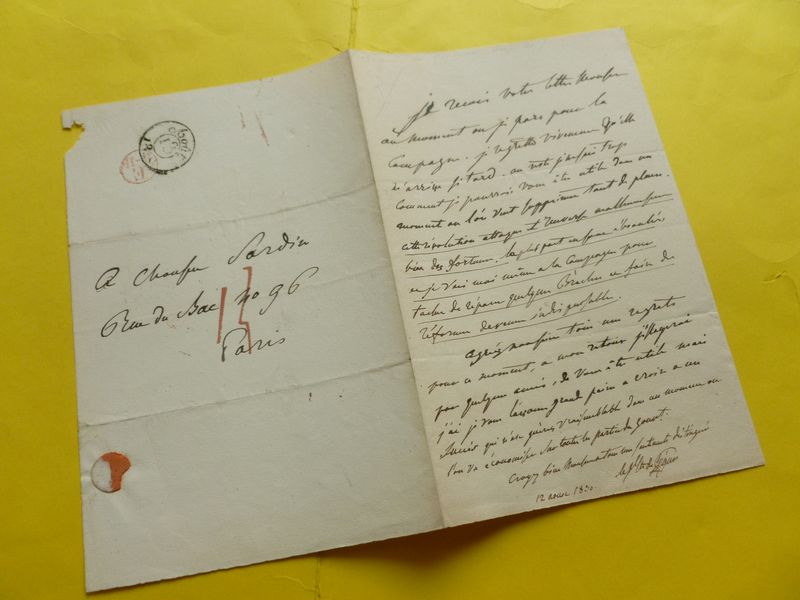 A Monsieur Sardin
Rue du Bac no 96
Paris
13
je reçois votre lettre Monsieur
au moment ou je pars pour la
Campagne. je regrette vivement qu'elle
m'arrive si tard. au reste je ne sais trop
comment je pourrois vous être utile dans un
moment ou l'on veut supprimer tant de places.
cette révolution attaque et renverse malheureusement
bien des fortunes, la plus part en sont ébranlées
et je vais moi même a la Campagne pour
tacher de réparer quelques Brèches et faire des
réformes devenues indispensables.
agréez Monsieur tous mes regrets
pour ce moment, a mon retour j'essayerai
par quelques amis, de vous être utile mais
j'ai je vous l'avoue grand peine a croire a un
succès qui n'est guères vraisemblable dans un moment ou
l'on va économiser sur toutes les parties du gouvt.
Croyez bien Monsieur a tous mes sentiments distingués
12 aoust 1830.